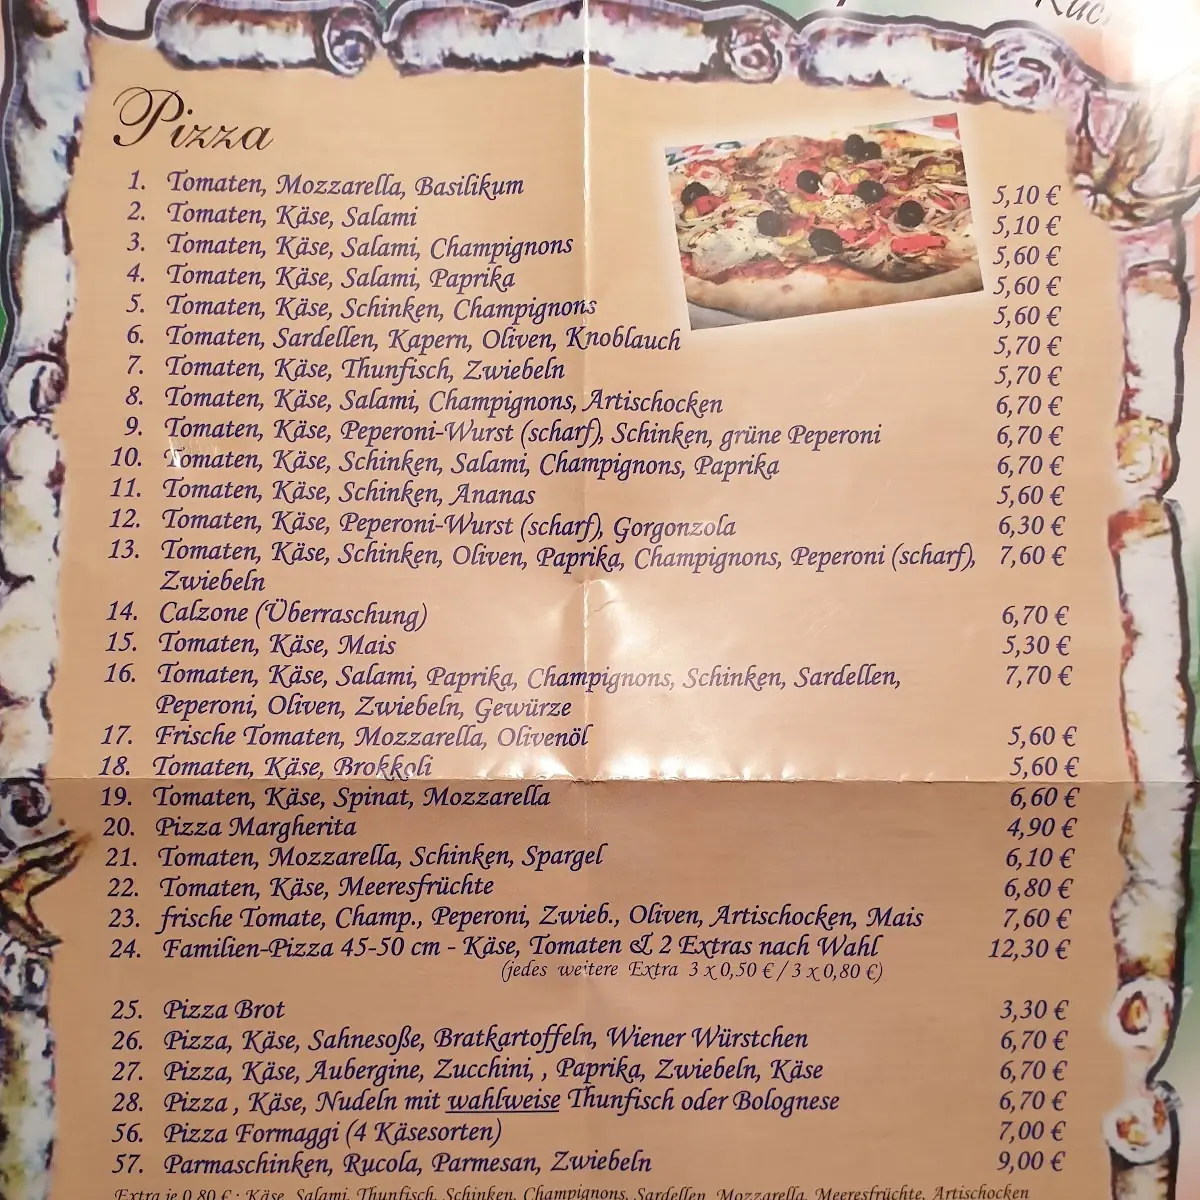 Pizza
1. Tomaten, Mozzarella, Basilikum 5,10 €
2. Tomaten, Käse, Salami 5,10 €
3. Tomaten, Käse, Salami, Champignons 5,60 €
4. Tomaten, Käse, Salami, Paprika 5,60 €
5. Tomaten, Käse, Schinken, Champignons 5,60 €
6. Tomaten, Sardellen, Kapern, Oliven, Knoblauch 5,70 €
7. Tomaten, Käse, Thunfisch, Zwiebeln 5,70 €
8. Tomaten, Käse, Salami, Champignons, Artischocken 6,70 €
9. Tomaten, Käse, Peperoni-Wurst (scharf), Schinken, grüne Peperoni 6,70 €
10. Tomaten, Käse, Schinken, Salami, Champignons, Paprika 6,70 €
11. Tomaten, Käse, Schinken, Ananas 5,60 €
12. Tomaten, Käse, Peperoni-Wurst (scharf), Gorgonzola 6,30 €
13. Tomaten, Käse, Schinken, Oliven, Paprika, Champignons, Peperoni (scharf), 7,60 €
Zwiebeln
14. Calzone (Überraschung) 6,70 €
15. Tomaten, Käse, Mais 5,30 €
16. Tomaten, Käse, Salami, Paprika, Champignons, Schinken, Sardellen, 7,70 €
Peperoni, Oliven, Zwiebeln, Gewürze
17. Frische Tomaten, Mozzarella, Olivenöl 5,60 €
18. Tomaten, Käse, Brokkoli 5,60 €
19. Tomaten, Käse, Spinat, Mozzarella 6,60 €
20. Pizza Margherita 4,90 €
21. Tomaten, Mozzarella, Schinken, Spargel 6,10 €
22. Tomaten, Käse, Meeresfrüchte 6,80 €
23. frische Tomate, Champ., Peperoni, Zwieb., Oliven, Artischocken, Mais 7,60 €
24. Familien-Pizza 45-50 cm - Käse, Tomaten & 2 Extras nach Wahl 12,30 €
(jedes weitere Extra 3 x 0,50 € / 3 x 0,80 €)
25. Pizza Brot 3,30 €
26. Pizza, Käse, Sahnesoße, Bratkartoffeln, Wiener Würstchen 6,70 €
27. Pizza, Käse, Aubergine, Zucchini, , Paprika, Zwiebeln, Käse 6,70 €
28. Pizza , Käse, Nudeln mit wahlweise Thunfisch oder Bolognese 6,70 €
56. Pizza Formaggi (4 Käsesorten) 7,00 €
57. Parmaschinken, Rucola, Parmesan, Zwiebeln 9,00 €
Extra je 0,80 € : Käse, Salami, Thunfisch, Schinken, Champignons, Sardellen, Mozzarella, Meeresfrüchte, Artischocken